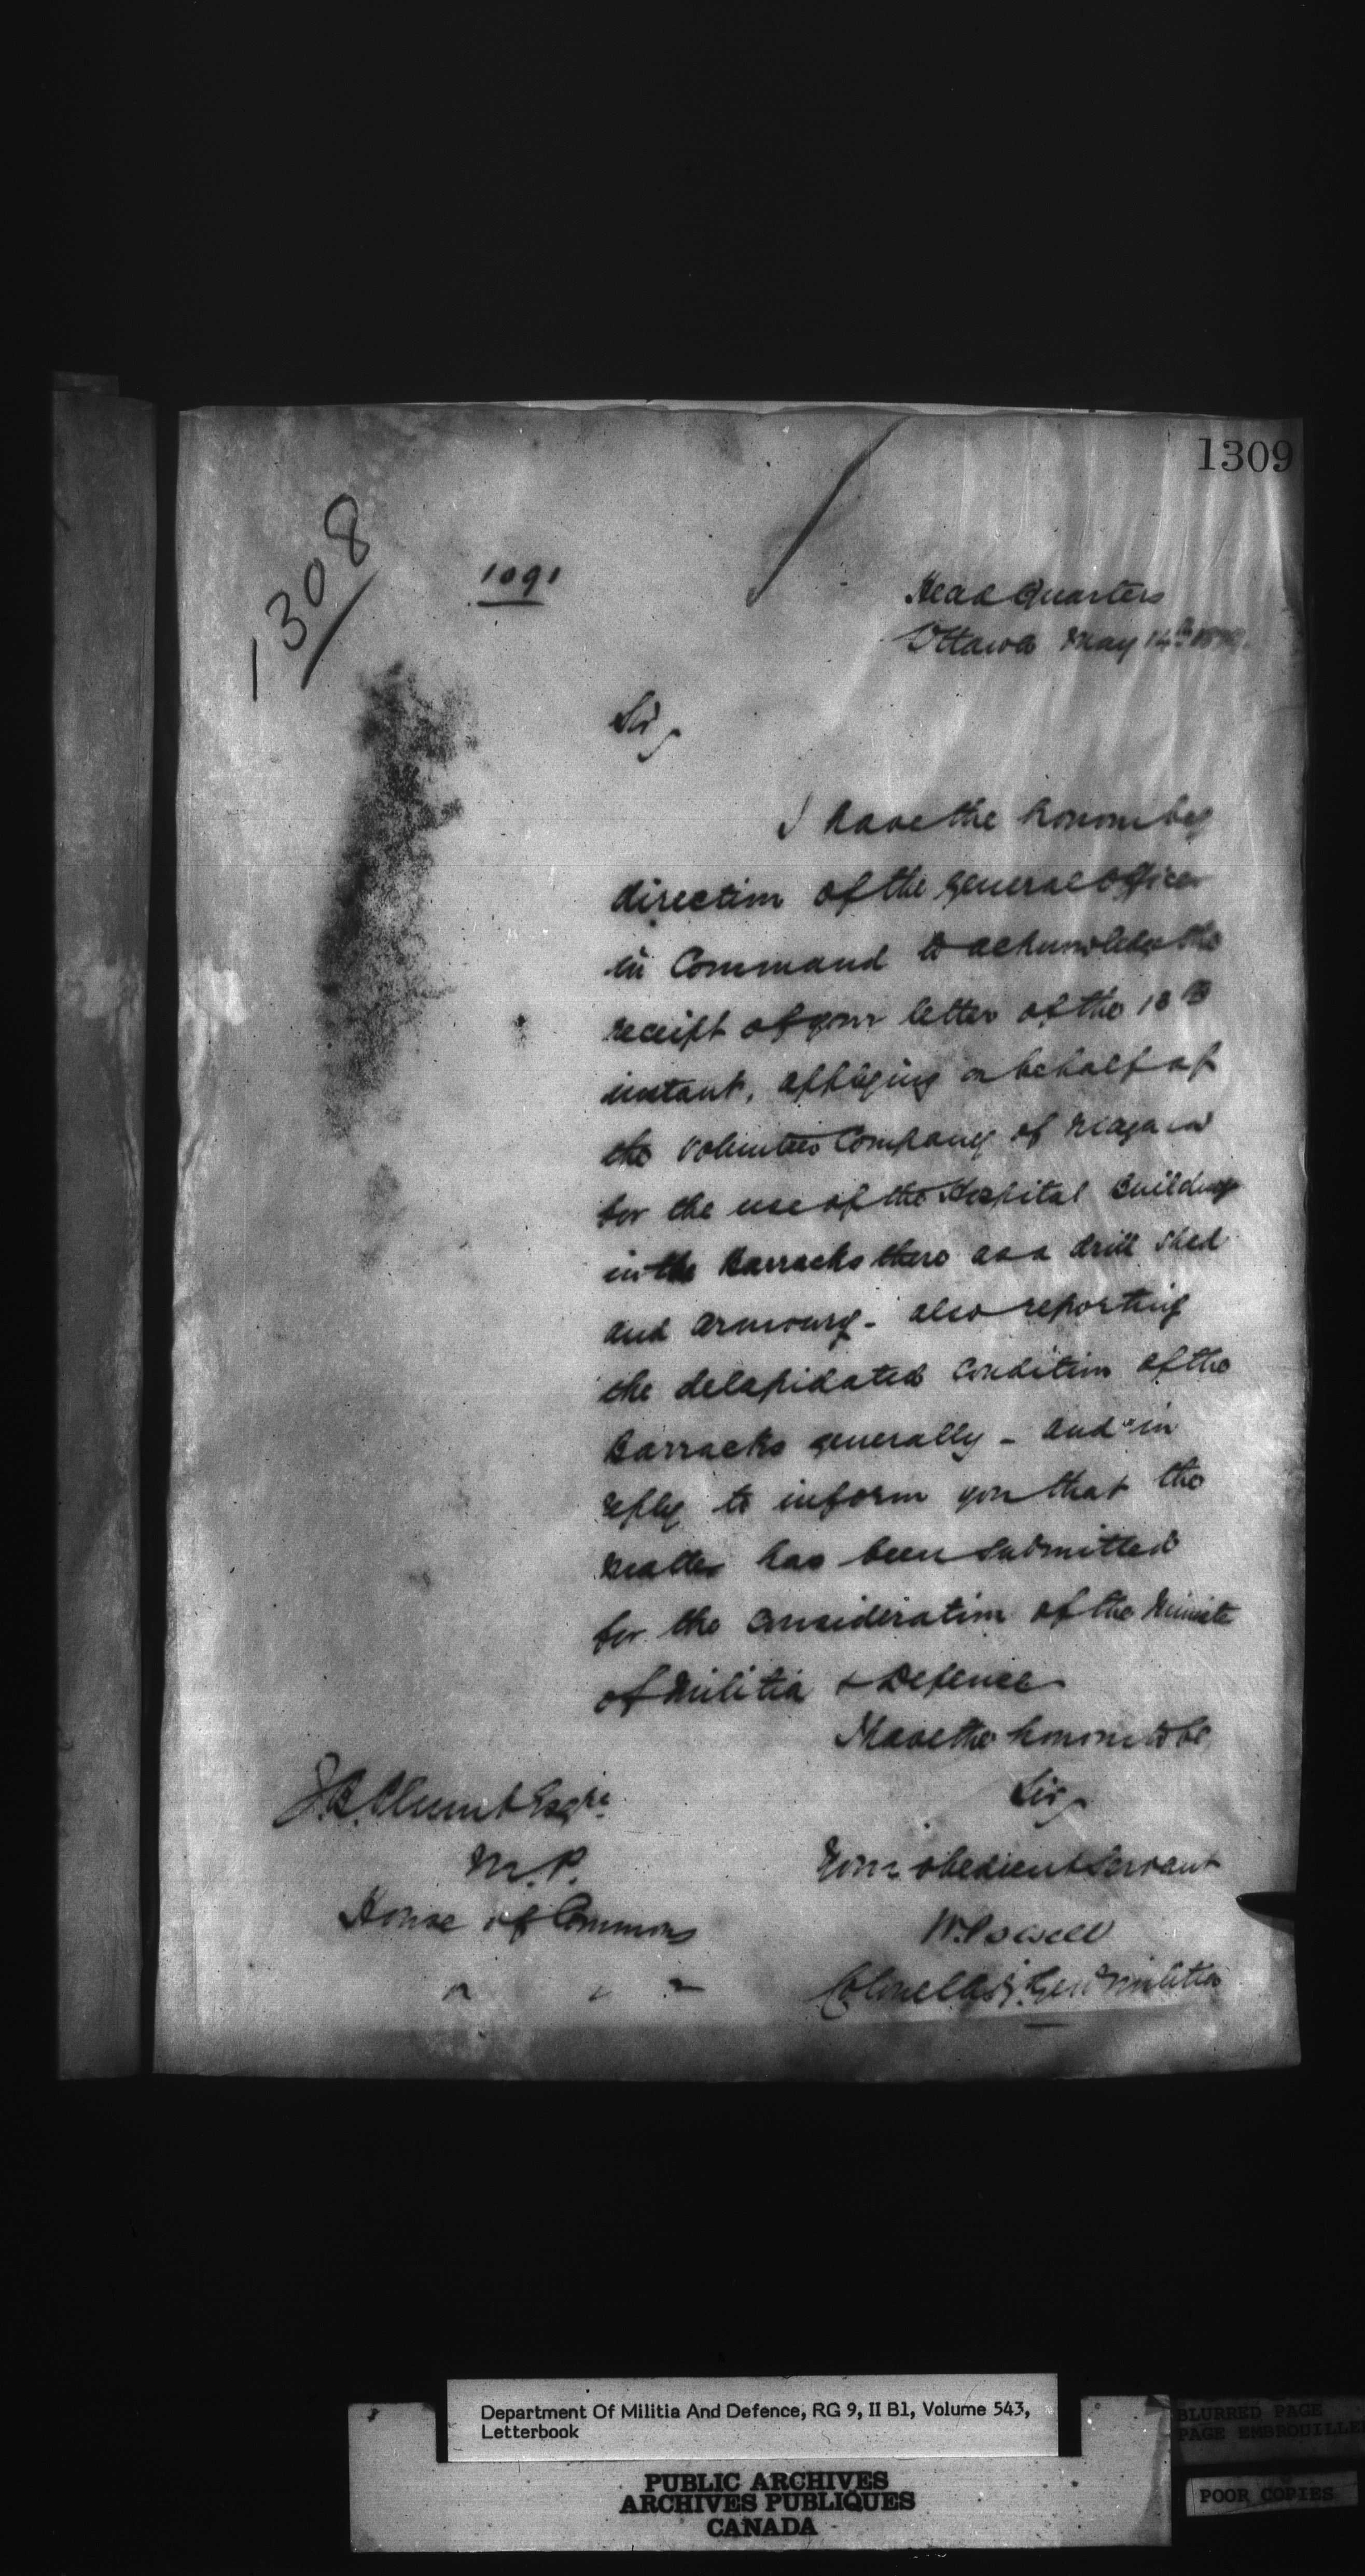 1309
1308
1091
Head Quarters
Ottawa May 14th
Sir,
I have the honour by
direction of the General Officer
in Command to acknowledge the
receipt of your letter of the 13th
instant, applying on behalf of
the Volunteer Company of Niagara
for the use of the Hospital Building
in the Barracks there as a drill shed
and armoury - also reporting
the delapidated condition of the
Barracks generally - and in
reply to inform you that the
matter has been submitted
for the consideration of the Minister
of Militia & Defence
I have the honour to be
Sir,
Your obedient Servant
W. Powell
Colonel Adj. Genl Militia
J.B. Plumb Esqre
M.P.
House of Commons
" " "
Department Of Militia And Defence, RG 9, II B1, Volume 543,
Letterbook
PUBLIC ARCHIVES
ARCHIVES PUBLIQUES
CANADA
BLURRED PAGE
PAGE EMBROUILLE
POOR COPIES